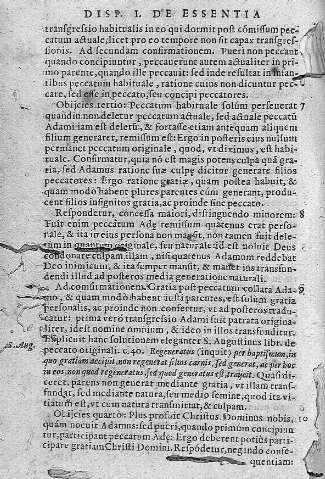 DISP. I. DE ESSENTIA
transgressio habitualis in eo qui dormit post cōmissum pec-
catum actuale, licet pro eo tempore non sit capax transgres-
sionis. Ad secundam confirmationem. Pueri non peccant
quando concipiuntur, peccauerunt autem actualiter in pri-
mo parente, quando ille peccauit: sed inde resultat in infan-
tibus peccatum habituale, ratione cuius non dicuntur pec-
care, sed esse in peccato, seu concipi peccatores.
Obijcies tertio: Peccatum habituale solùm perseuerat 7
quandiu non deletur peccatum actuale, sed actuale peccatū
Adami iam est deletū, & fortasse etiam antequam aliquem
filium generaret, remissum est: Ergo in posteris eius nullum
permanet peccatum originale, quod, vt diximus, est habi-
tuale. Confirmatur, quia nō est magis potens culpa quā gra-
tia, sed Adamus ratione suæ culpæ dicitur generare filios
peccatores: Ergo ratione gratiæ, quam postea habuit, &
quam modò habent plures parentes cùm generant, produ-
cent filios insignitos gratia, ac proinde sine peccato.
Respondetur, concessa maiori, distinguendo minorem: 8
Fuit enim peccatum Adę remissum quatenus erat perso-
nale, & ita ineius persona non mansit, non tamen fuit dele-
tum in quantum originale, seu naturale id est noluit Deus
condonare culpam illam, nisi quatenus Adamum reddebat
Deo inimicum, & ita semper mansit, & manet ita transfun-
dendi illud ad posteros media generatione naturali.
Ad confirmationem. Gratia post peccatum collata Ada- 9
mo, & quam modò habent iusti parentes, est solum gratia
personalis, ac proinde non confertur, vt ad posteros tradu-
catur: prima verò transgressio Adami fuit patrata originali-
liter, idest nomine omnium, & ideo in illos transfunditur.
S. Aug. Explicuit hanc solutionem eleganter S. Augustinus libr. de
peccato originali. c. 40. Regeneratus (inquit) per baptismum, in
quo gratiam accipit, non regenerat filios carnis, sed generat, ac per hoc
in eos, non quod regeneratus, sed quod generatus est, traijcit. Quasi di-
ceret, parens non generat mediante gratia, vt illam transf-
fundat, sed mediante natura, seu medio semine, quod ita vi-
tiatum est, vt cum natura transmittat, & culpam.
Obijcies quartò: Plus profuit Christus Dominus nobis, 10
quàm nocuit Adamus: sed pueri, quando primùm concipiun-
tur, participant peccatum Adę: Ergo deberent potiùs parti-
cipare gratiam Christi Domini. Respōdetur, negando conse-
quentiam: